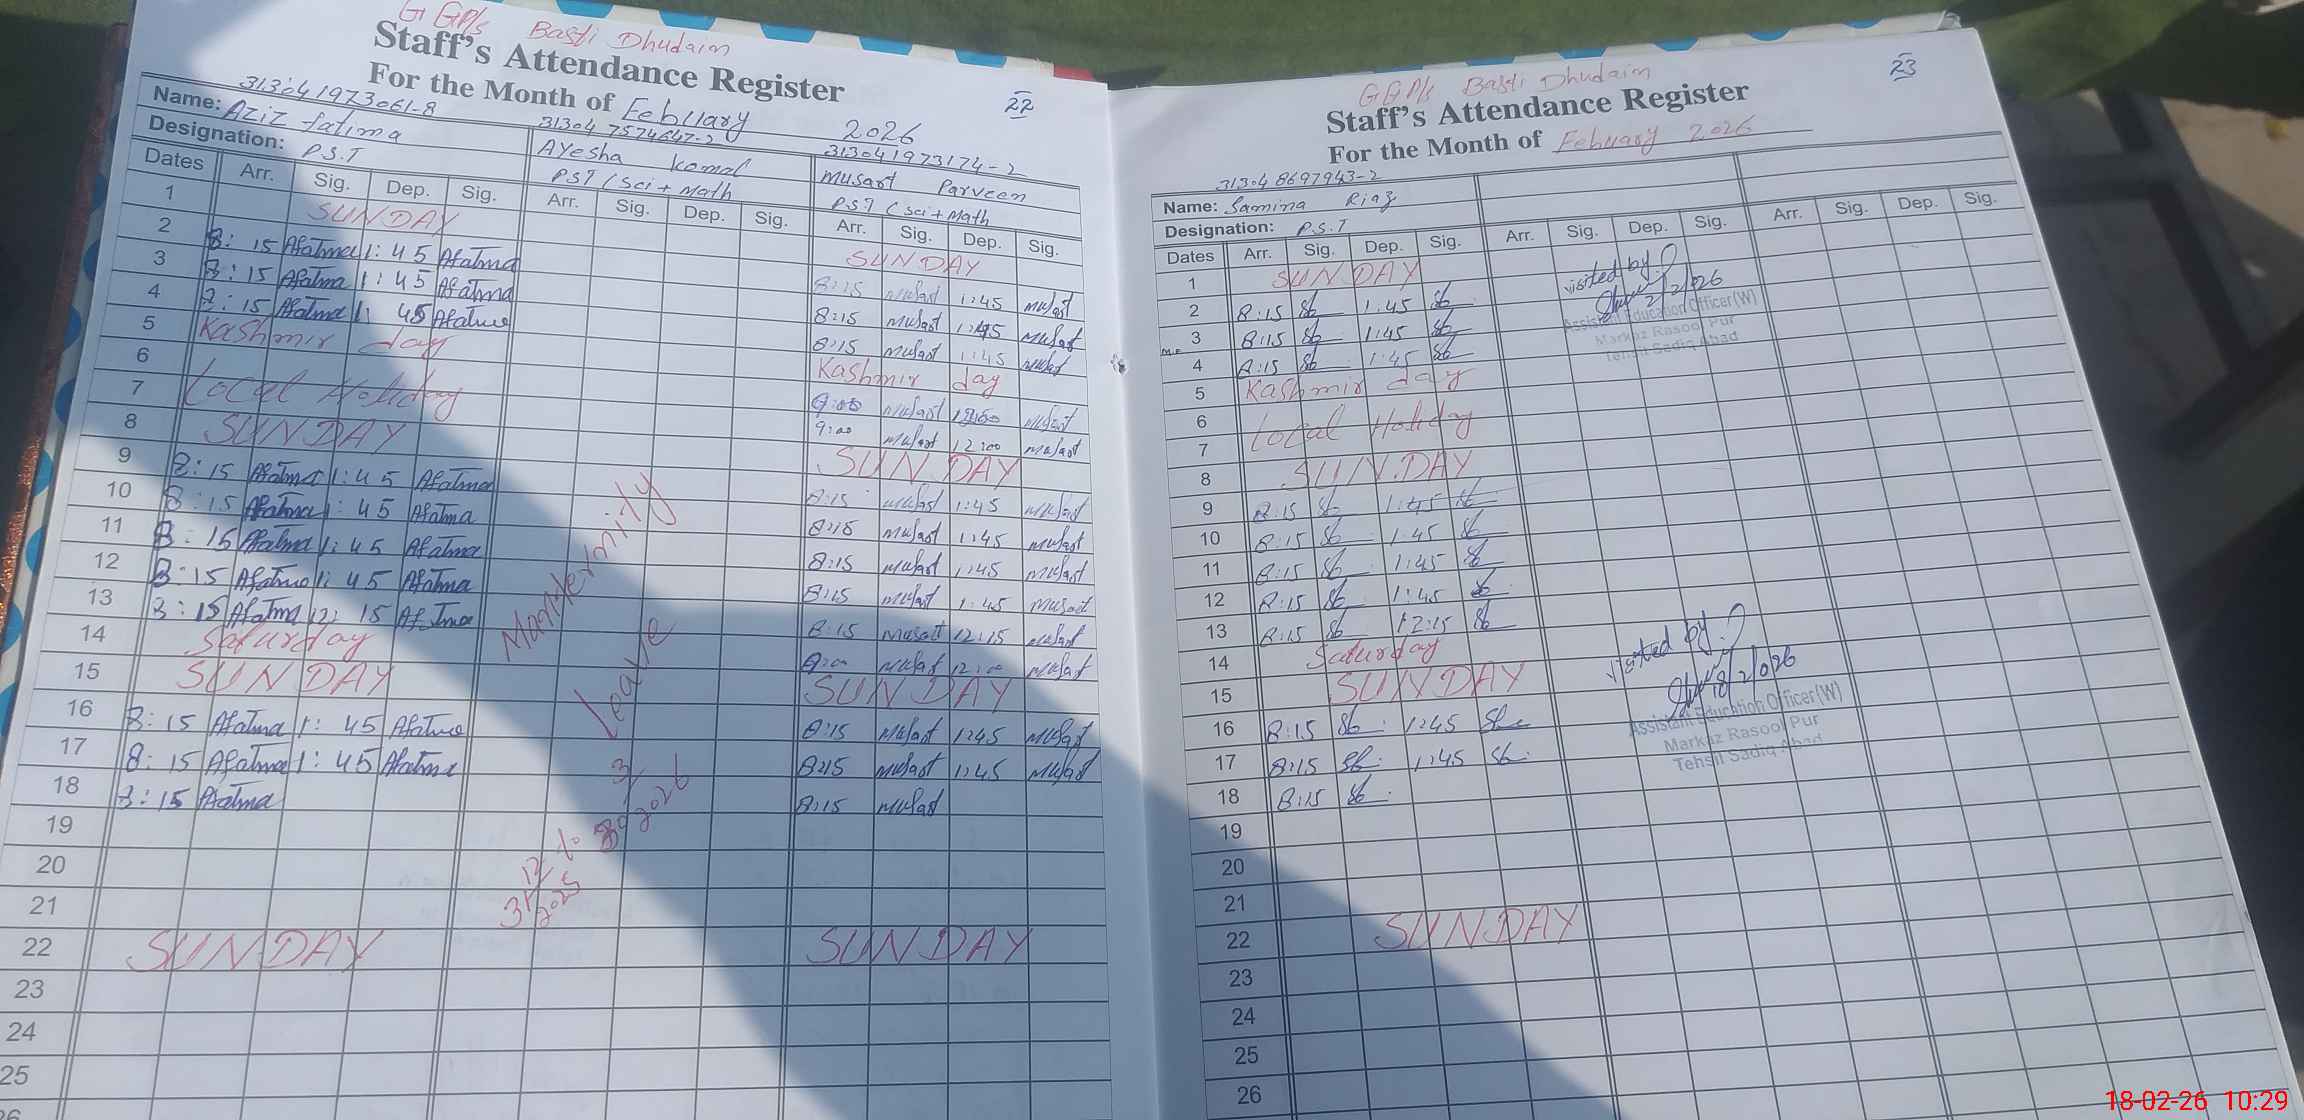 GGP/s Basti Dhudaim
Staff's Attendance Register
For the Month of February 2026
22
313041973061-8
31304 7574647-2
313041973174-2
Name: Aziz fatima Ayesha Komal Musart Parveen
Designation: P.S.T PST (sci + Math PST (sci + Math
Dates Arr. Sig. Dep. Sig. Arr. Sig. Dep. Sig. Arr. Sig. Dep. Sig.
1 SUNDAY SUNDAY
2 8:15 Afatma 1:45 Afatma 8:15 Musart 1:45 Musart
3 8:15 Afatma 1:45 Afatma 8:15 Musart 1:45 Musart
4 8:15 Afatma 1:45 Afatma 8:15 Musart 1:45 Musart
5 Kashmir day Kashmir day
6 9:00 Musart 12:00 Musart
7 Local Holiday 9:00 Musart 12:00 Musart
8 SUNDAY SUNDAY
9 8:15 Afatma 1:45 Afatma 8:15 Musart 1:45 Musart
10 8:15 Afatma 1:45 Afatma 8:15 Musart 1:45 Musart
11 8:15 Afatma 1:45 Afatma 8:15 Musart 1:45 Musart
12 8:15 Afatma 1:45 Afatma 8:15 Musart 1:45 Musart
13 8:15 Afatma 12:15 Afatma 8:15 Musart 12:15 Musart
14 Saturday 9:00 Musart 12:00 Musart
15 SUNDAY SUNDAY
16 8:15 Afatma 1:45 Afatma 8:15 Musart 1:45 Musart
17 8:15 Afatma 1:45 Afatma 8:15 Musart 1:45 Musart
18 8:15 Afatma 8:15 Musart
19
20
21
22 SUNDAY SUNDAY
23
24
25
26
Manternity
leave
31/12/2025 to 30/3/2026
GGP/s Basti Dhudaim
23
Staff's Attendance Register
For the Month of February 2026
31304 8697943-2
Name: Samina Riaz
Designation: P.S.T
Dates Arr. Sig. Dep. Sig. Arr. Sig. Dep. Sig. Arr. Sig. Dep. Sig.
1 SUNDAY
2 8:15 Sb 1:45 Sb
3 8:15 Sb 1:45 Sb
4 8:15 Sb 1:45 Sb
5 Kashmir day
6
7 Local Holiday
8 SUNDAY
9 8:15 Sb 1:45 Sb
10 8:15 Sb 1:45 Sb
11 8:15 Sb 1:45 Sb
12 8:15 Sb 1:45 Sb
13 8:15 Sb 12:15 Sb
14 Saturday
15 SUNDAY
16 8:15 Sb 1:45 Sb
17 8:15 Sb 1:45 Sb
18 8:15 Sb
19
20
21
22 SUNDAY
23
24
25
26
visited by
2/2/026
Assistant Education Officer(W)
Markaz Rasool Pur
Tehsil Sadiq Abad
visited by
18/2/026
Assistant Education Officer(W)
Markaz Rasool Pur
Tehsil Sadiq Abad
18-02-26 10:29